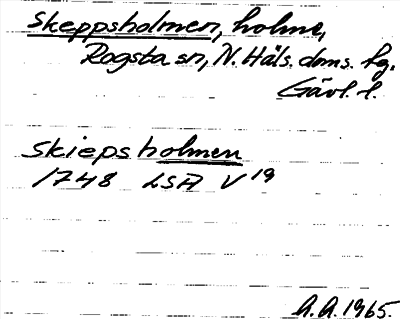 Skeppsholmen, holme,
Rogsta sn, N. Häls. doms. hg.
Gävl. l.
Skiepsholmen
1748 LSA V 19
A. A. 1965.